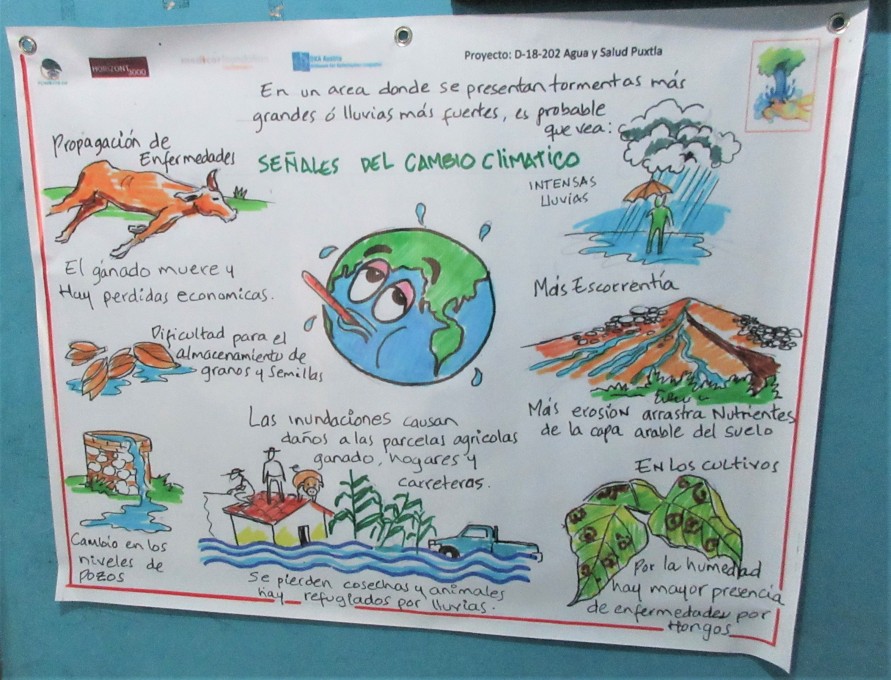 HORIZONT3000
DKA Austria
Proyecto: D-18-202 Agua y Salud Puxtla
En un area donde se presentan tormentas más
grandes ó lluvias más fuertes, es probable
que vea:
SEÑALES DEL CAMBIO CLIMATICO
Propagación de
Enfermedades
El ganado muere y
Hay perdidas economicas.
Dificultad para el
almacenamiento de
granos y semillas
Cambio en los
niveles de
pozos
Las inundaciones causan
daños a las parcelas agricolas
ganado, hogares y
carreteras.
Se pierden cosechas y animales
hay refugiados por lluvias.
INTENSAS
Lluvias
Más Escorrentía
Más erosión arrastra Nutrientes
de la capa arable del suelo
EN LOS CULTIVOS
Por la humedad
hay mayor presencia
de enfermedades por
Hongos